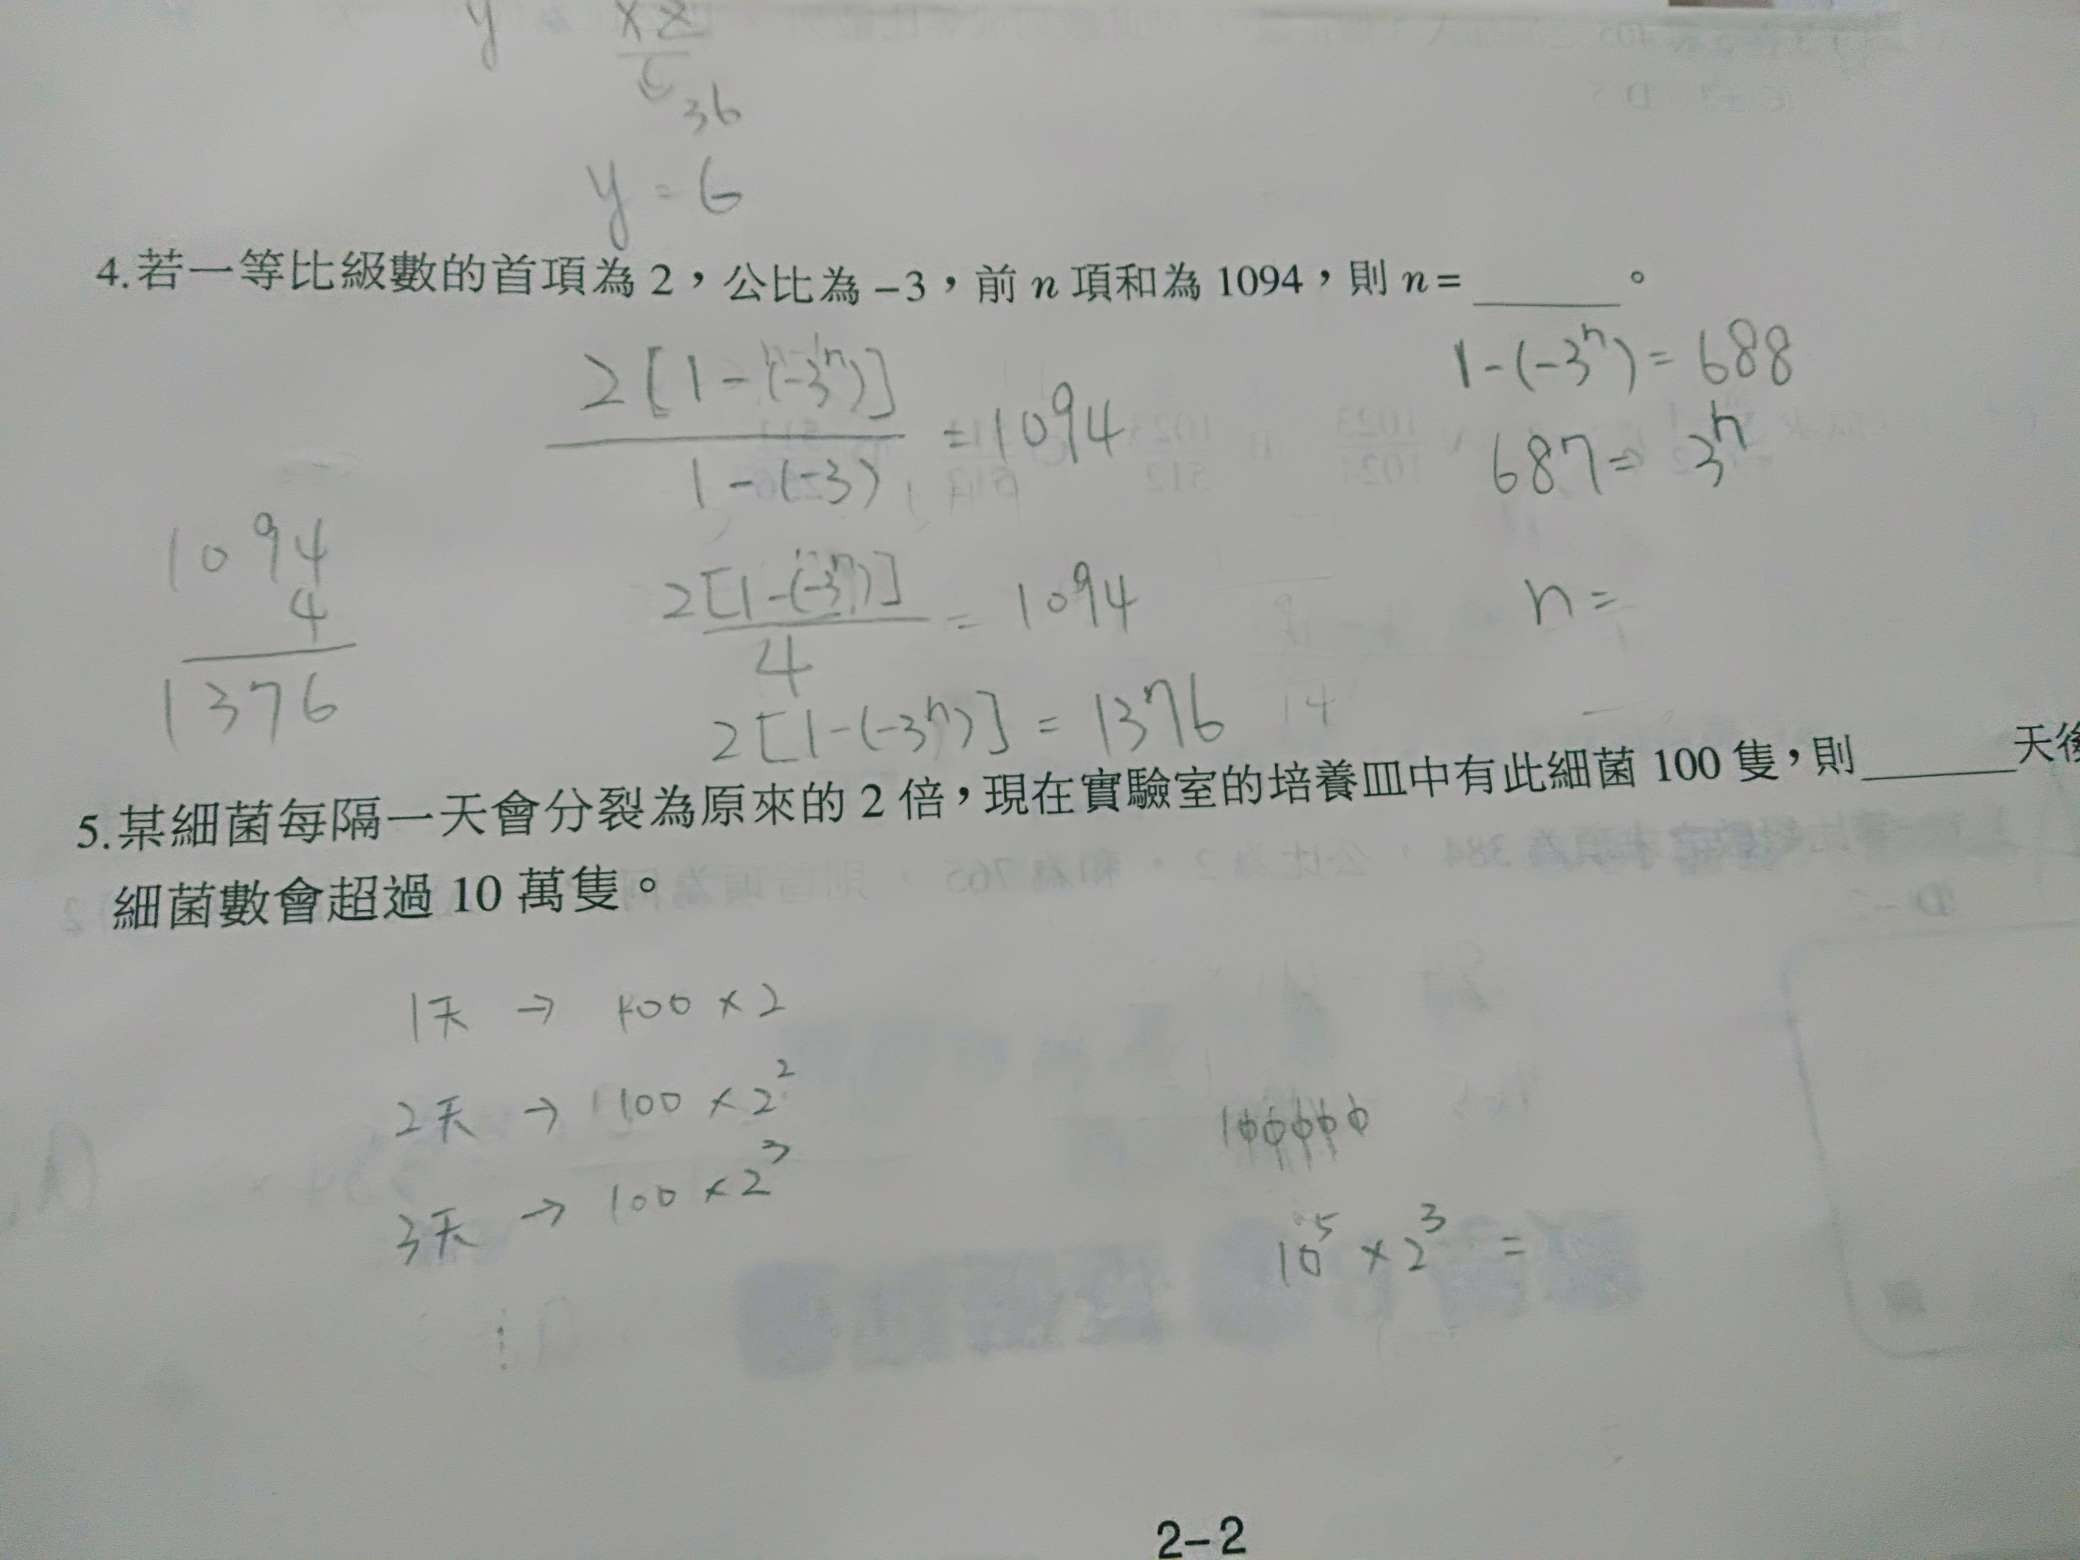 y
6
36
y = 6
4.若一等比級數的首項為 2，公比為 –3，前 n 項和為 1094，則 n = ______。
2[1-(-3ⁿ)]
1-(-3)
=1094
1-(-3ⁿ) = 688
687 = 3ⁿ
n =
1094
4
1376
2[1-(-3ⁿ)]
4
= 1094
2[1-(-3ⁿ)] = 1376
5.某細菌每隔一天會分裂為原來的 2 倍，現在實驗室的培養皿中有此細菌 100 隻，則______天後
細菌數會超過 10 萬隻。
1天 → 100 × 2
2天 → 100 × 2²
3天 → 100 × 2³
100000
10⁵ × 2³ =
2-2